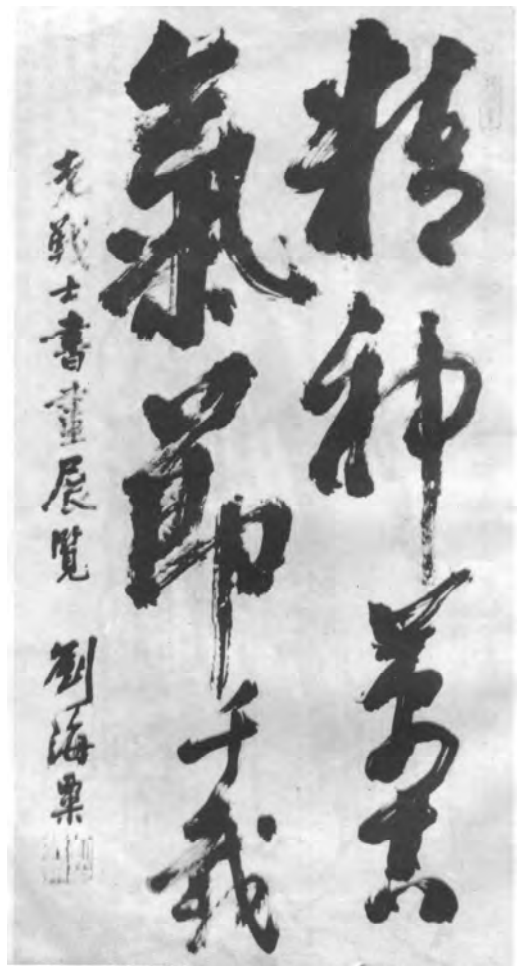 精神萬古
氣節千載
老戰士書畫展覽 劉海粟